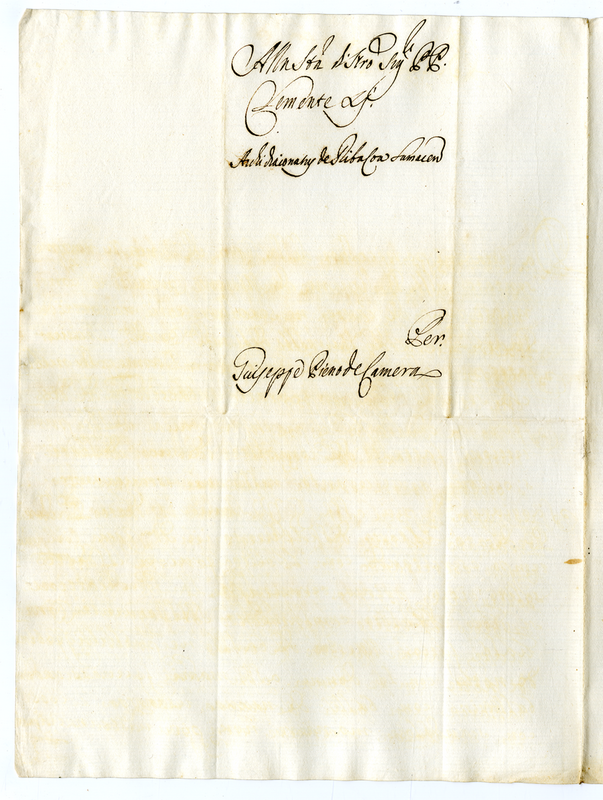 Alla Stà di Nro Sigre PP.
Clemente XI.
Archidiaconatus de Ribas con Lumacen
Per.
Giuseppe Pieno de Camera